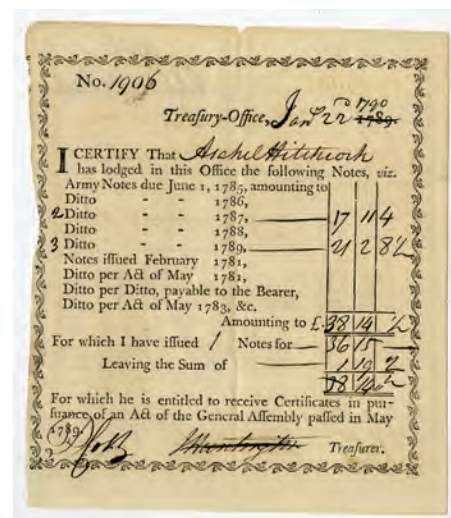 No. 1906
Treasury-Office, Jan.y 22d 1790 1789.
I CERTIFY That Asahel Hitchcock
has lodged in this Office the following Notes, viz.
Army Notes due June 1, 1785, amounting to
Ditto - - 1786,
2 Ditto - - 1787, 17 11 4
Ditto - - 1788,
3 Ditto - - 1789, 21 2 8½
Notes iſſued February 1781,
Ditto per Act of May 1781,
Ditto per Ditto, payable to the Bearer,
Ditto per Act of May 1783, &c.
Amounting to £. 38 14 ½
For which I have iſſued 1 Notes for 36 15 —
Leaving the Sum of 1 19 ½
38 14 ½
For which he is entitled to receive Certificates in pur-
ſuance of an Act of the General Aſſembly paſſed in May
1789.
J Huntington Treaſurer.